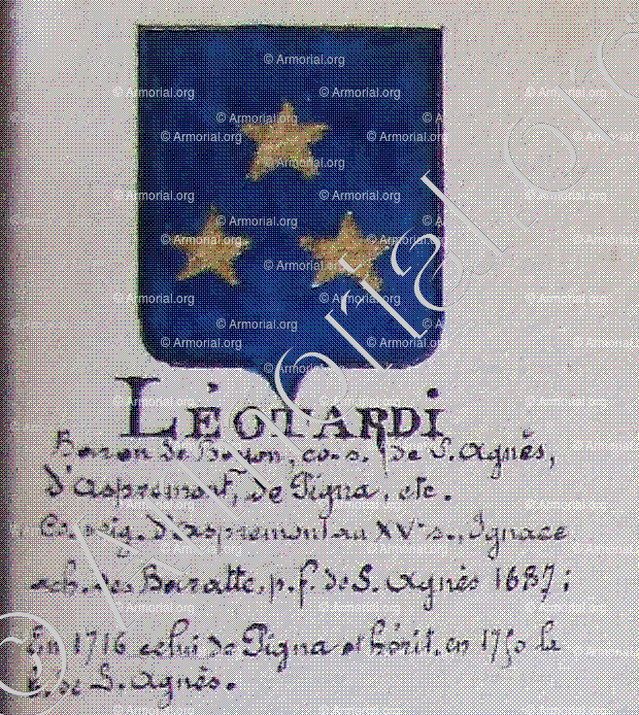 LÉOTARDI
Baron de Boyon, co-s. de S. Agnès,
d'Aspremont, de Pigna, etc.
Coseig. d'Aspremont au XVe s., Ignace
ach. des Baratte, p. f. de S. Agnès 1687 ;
En 1716 celui de Pigna et hérit. en 1750 le
de S. Agnès.
© Armorial.org